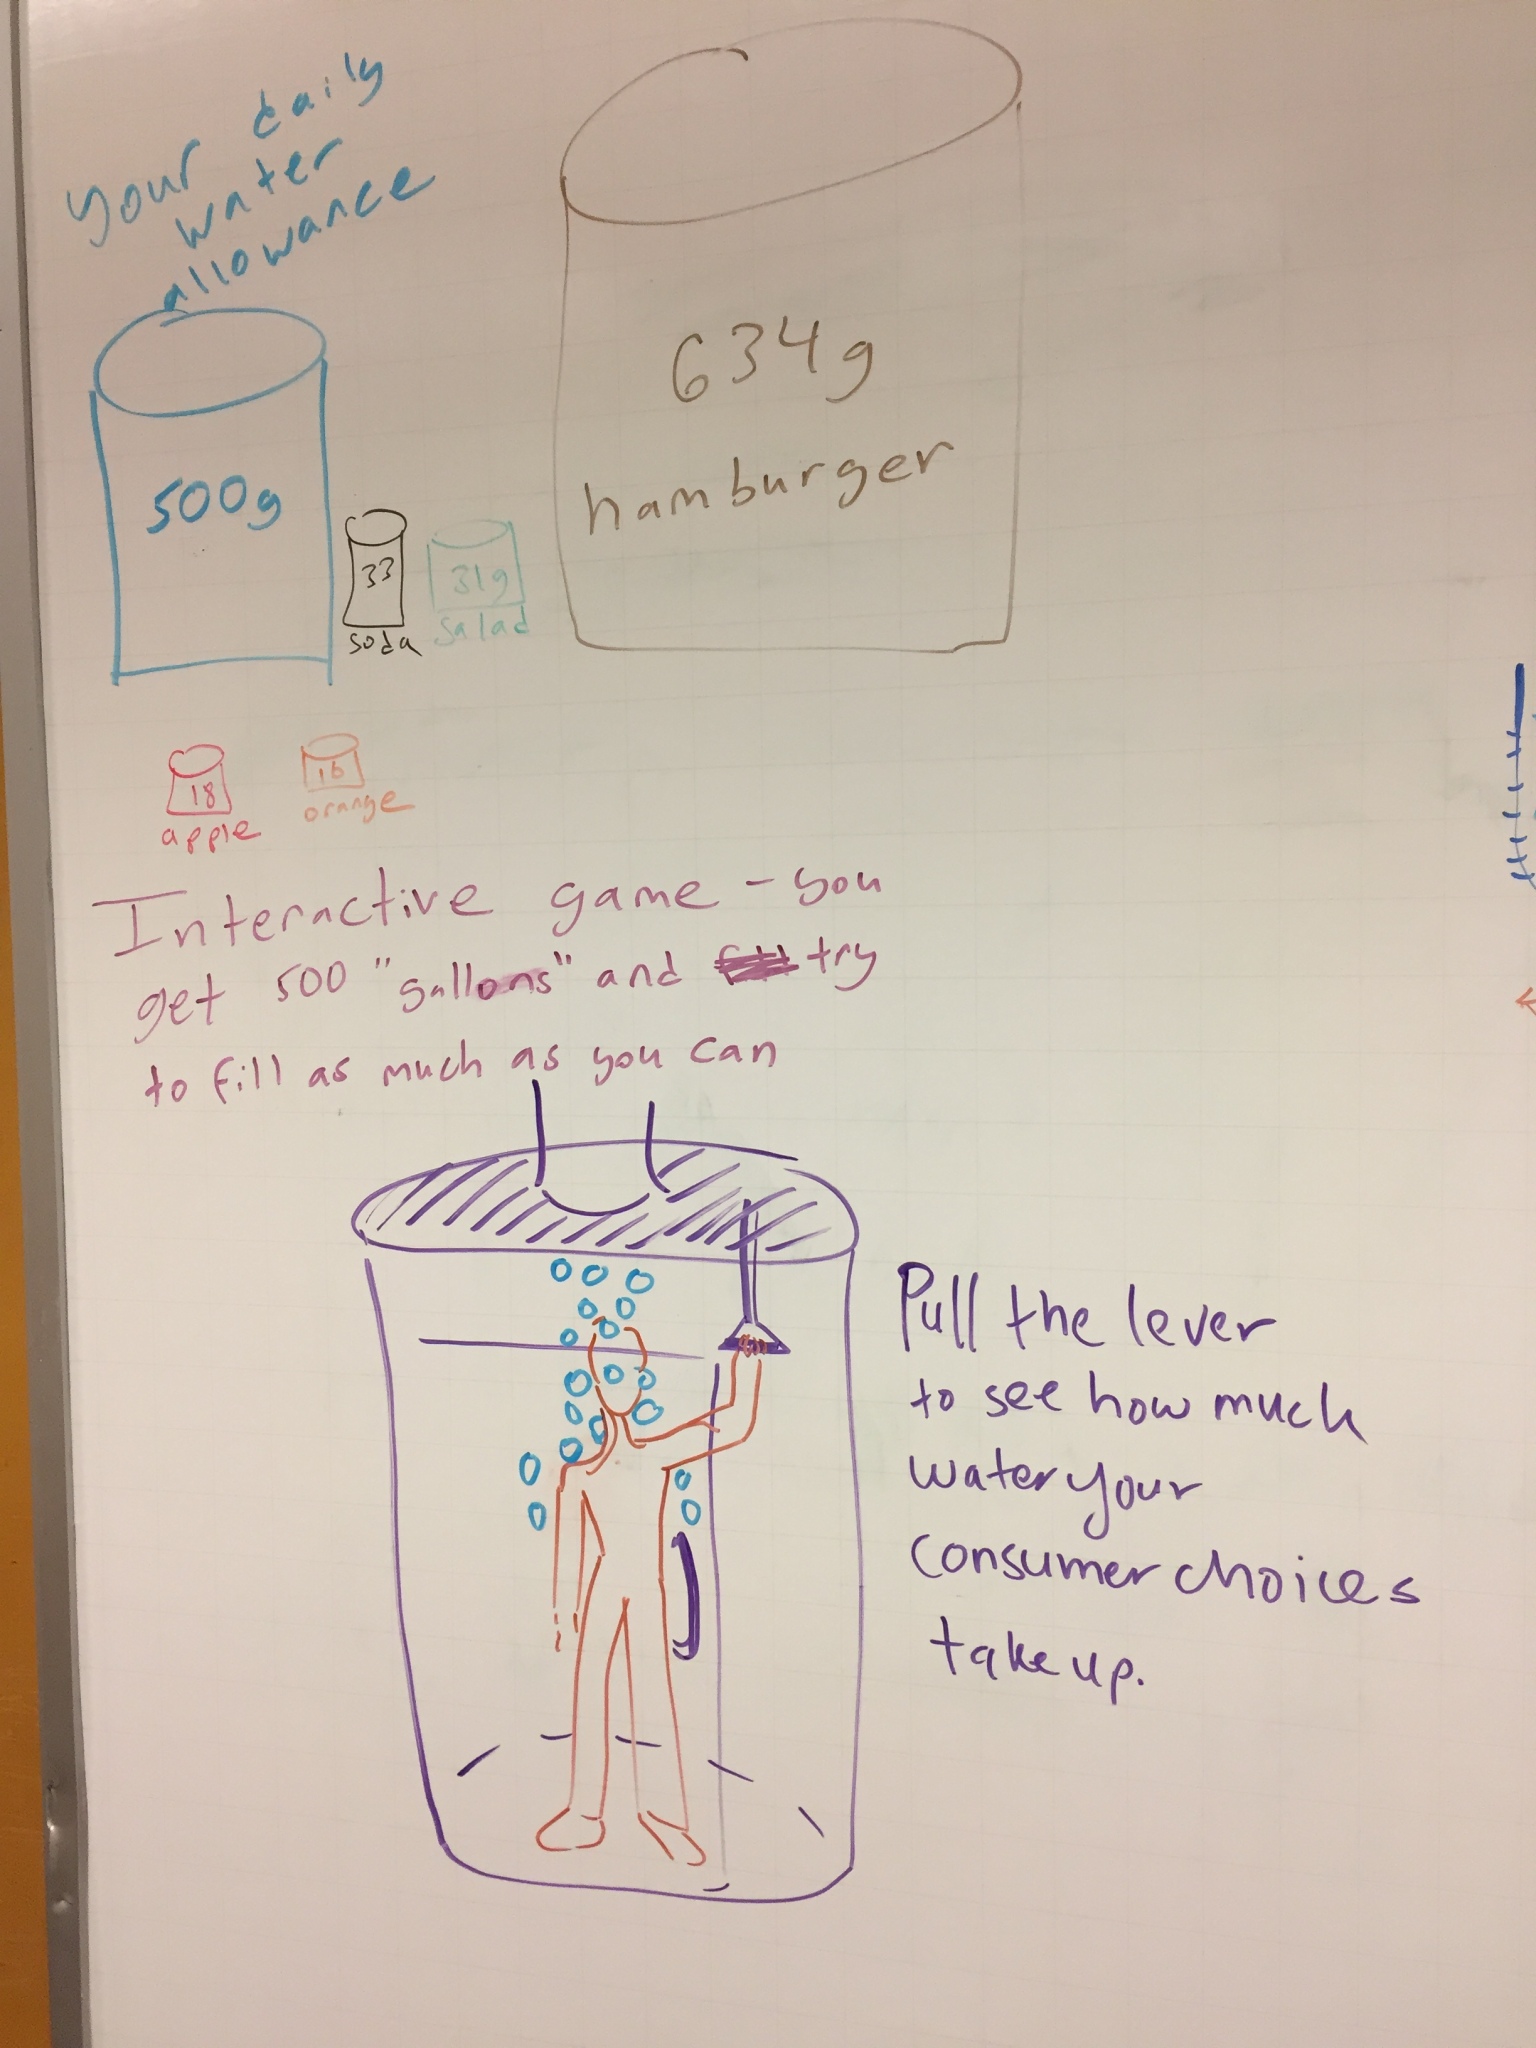 your daily
water
allowance
500g
33
soda
31g
salad
634g
hamburger
18
apple
16
orange
Interactive game - you
get 500 "gallons" and try
to fill as much as you can
Pull the lever
to see how much
water your
consumer choices
take up.